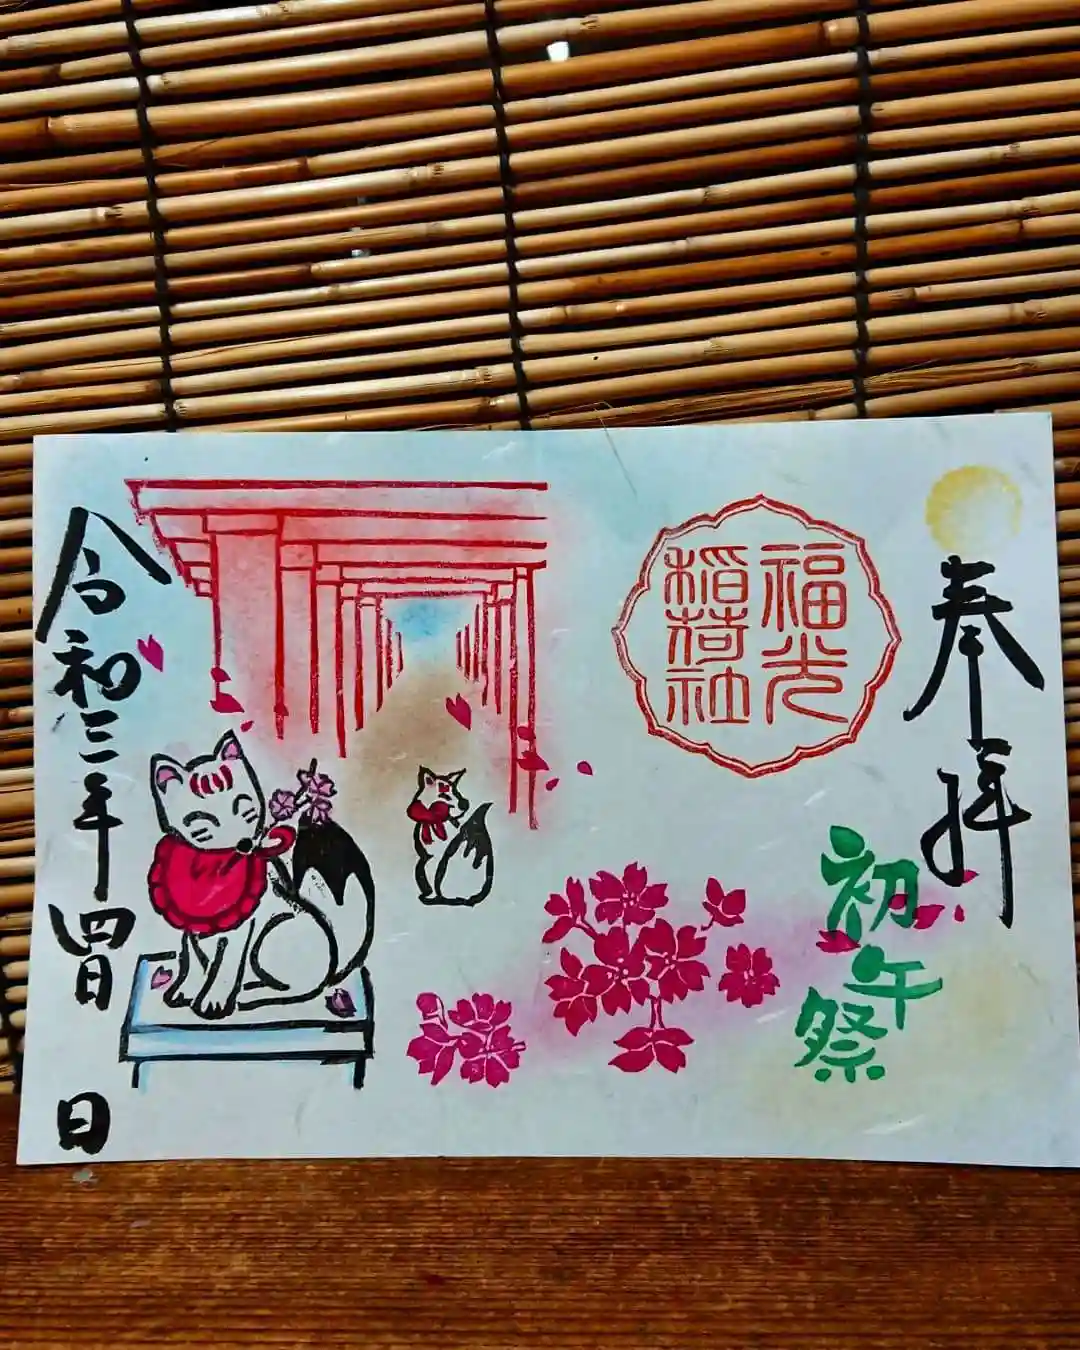 奉拝
初午祭
福光
稲荷社
令和三年四月 日